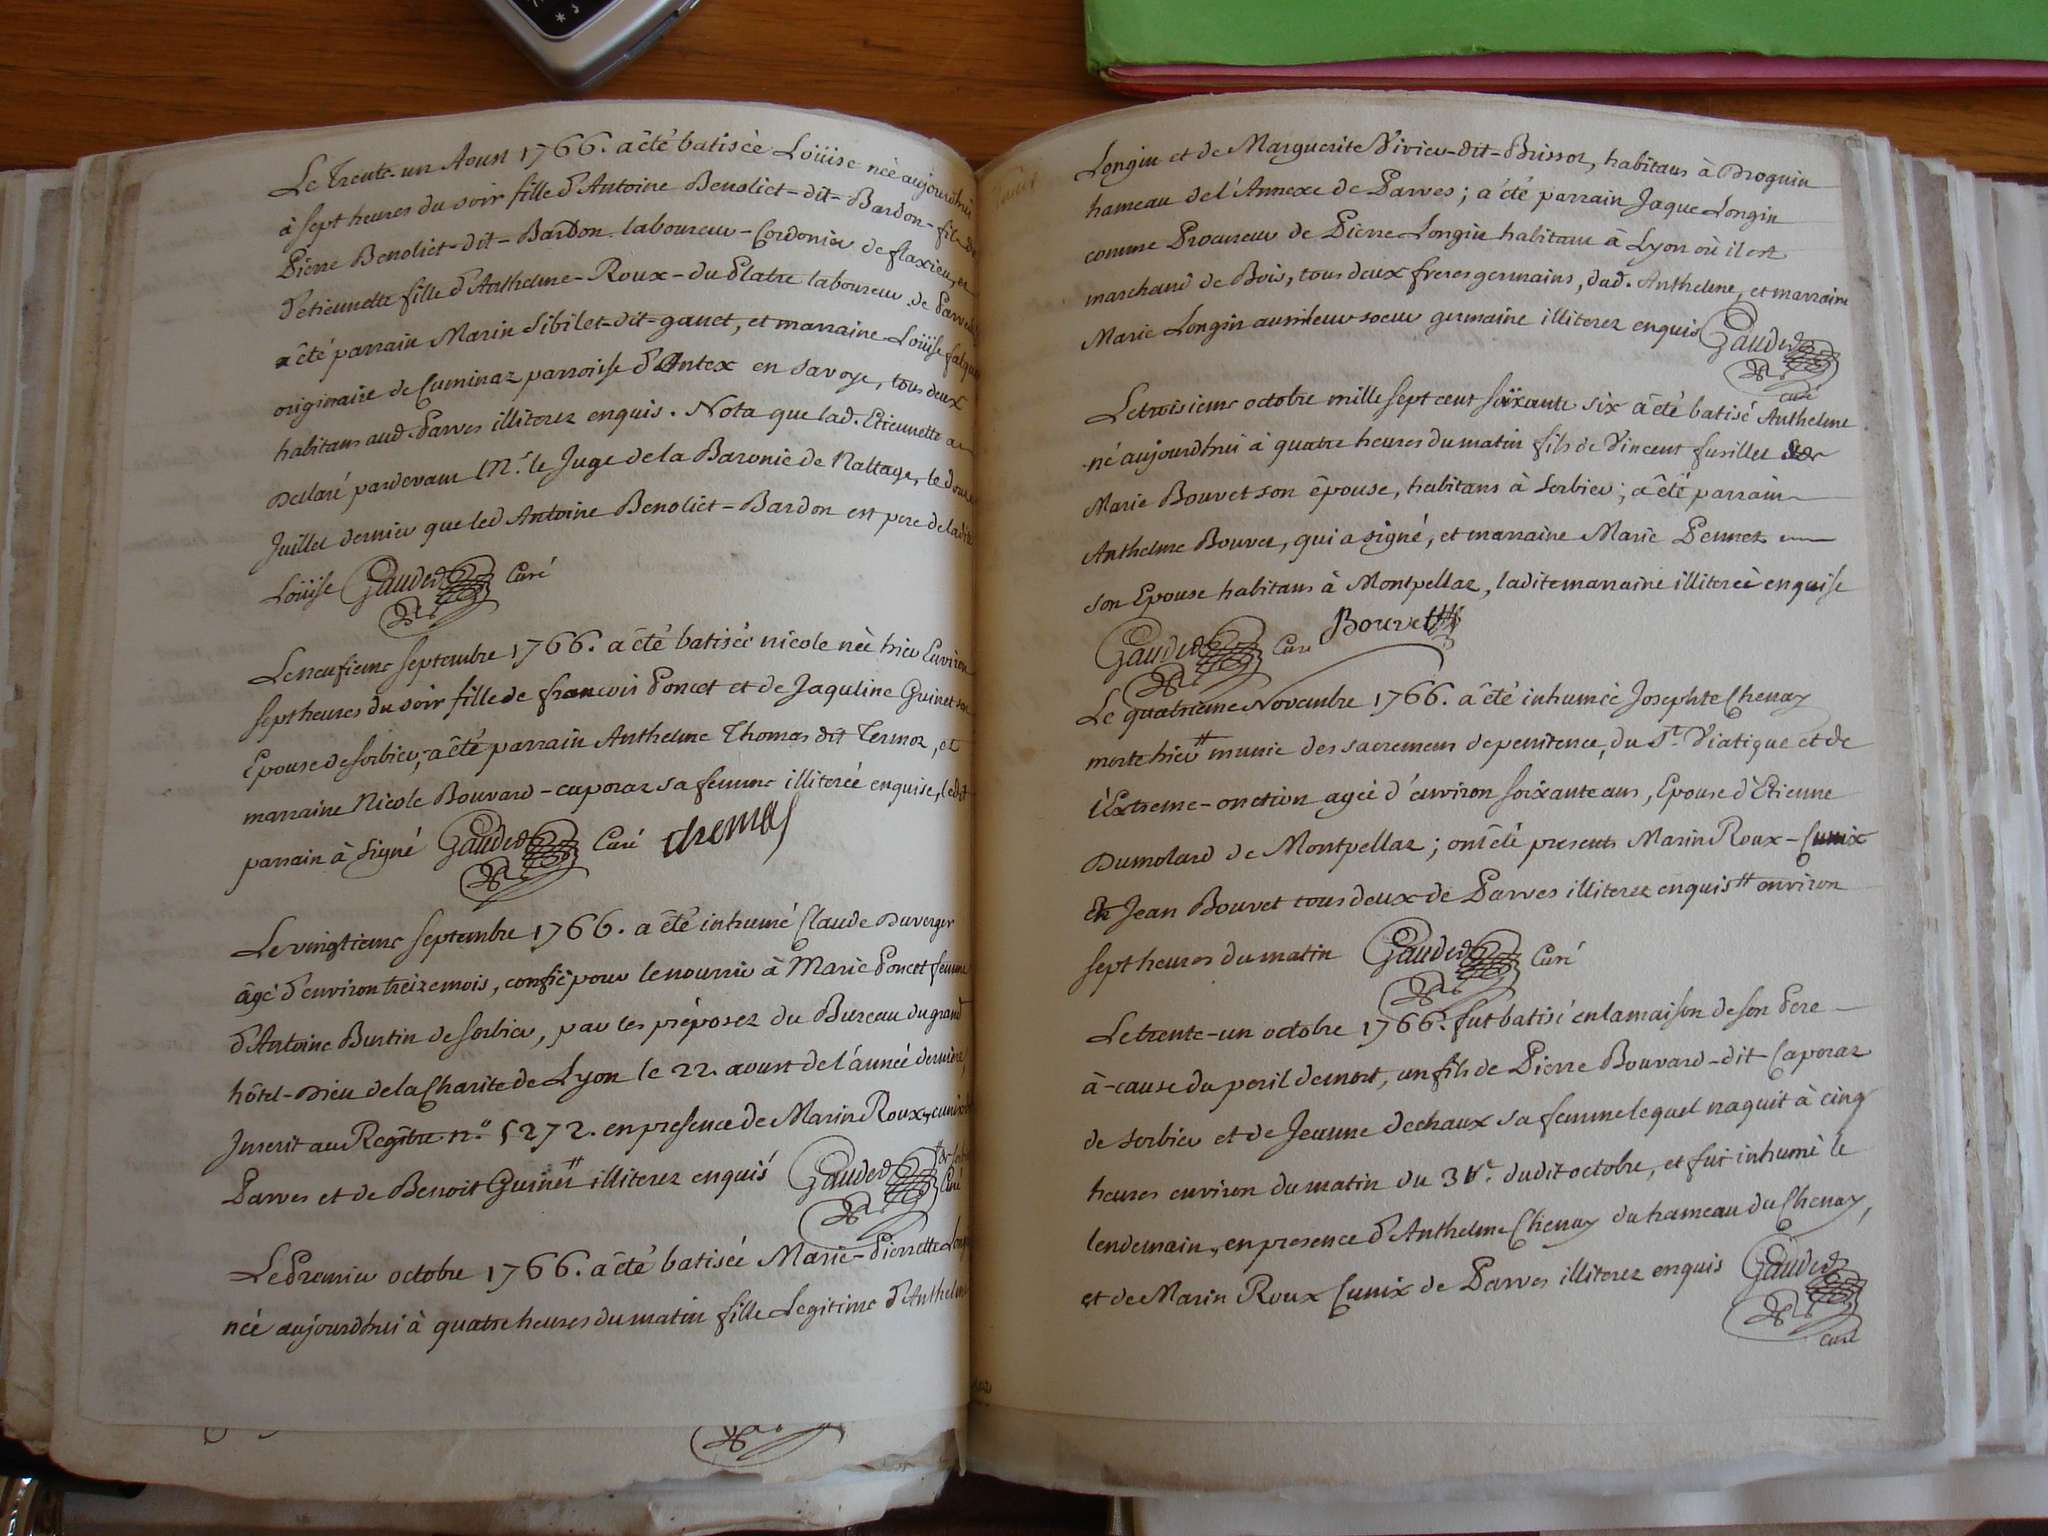 Le Trente-un Aoust 1766. a êté batisèe Loüise née aujourdhui
à sept heures du soir fille d'Antoine Benoliet-dit-Bardon-fils de
Pierre Benoliet-dit-Bardon laboureur-Cordonier de flaxieu, et
d'etiennette fille d'Anthelme-Roux-du Platre laboureur de Parves
a êté parrain Marin Sibilet-dit-ganet, et marraine Loüise
originaire de Cuminaz parroisse d'Antex en Savoye, tous deux
habitans aud. Parves illiterez enquis. Nota que lad. Etiennette a
Declaré pardevant Mr. le Juge de la Baronie de Naltage, le douze
Juillet dernier que led Antoine Benoliet-Bardon est pere de ladite
Loüise Gaudet Curé
Le neufieme septembre 1766. a êté batisée nicole née hier Environ
sept heures du soir fille de francois Poncet et de Jaquline Guinet son
Epouse de sorbier; a êté parrain Anthelme Thomas dit Termoz, et
marraine Nicole Bouvard-caporaz sa femme illiterée enquise, ledit
parrain à signé Gaudet Curé thomas
Le vingtieme septembre 1766. a êté inhumé Claude Duverger
âgé d'environ treize mois, confié pour le nourrir à Marie Poncet femme
d'Antoine Burtin de sorbier, par les préposez du Bureau du grand
hôtel-Dieu de la Charite de Lyon le 22. aoust de l'année derniere,
Inscrit au Regître n.o 5272. en presence de Marin Roux-cunix de
Parves et de Benoit Guinet # illiterez enquis Gaudet Curé
Le Premier octobre 1766. a êté batisée Marie-Pierrette Longin
née aujourdhui à quatre heures du matin fille Legitime d'Anthelme
Longin et de Marguerite Vivier-dit-Brissoz, habitans à Drognin
hameau de l'Annexe de Parves; a êté parrain Jaque Longin
comme Procureur de Pierre Longin habitant à Lyon où il est
marchand de Bois, tous deux freres germains, dud. Anthelme, et marraine
Marie Longin aussi leur soeur germaine illiterez enquis Gaudet
curé
Le troisieme octobre mille sept cent soixante six a êté batisé Anthelme
né aujourdhui à quatre heures du matin fils de Vincent fusillet et de
Marie Bouvet son êpouse, habitans à Sorbier; a êté parrain
Anthelme Bouvet, qui a signé, et marraine Marie Pennet
son Epouse habitans à Montpellaz, ladite marraine illiterée enquise
Gaudet Curé Bouvet
Le quatrieme Novembre 1766. a êté inhumée Josephte Chenay
morte hier # munie des sacremens de penitence, du St. Viatique et de
l'Extreme-onction agée d'environ soixante ans, Epouse d'Etienne
Dumolard de Montpellaz; ont êté presents Marin Roux-Cunix
Et Jean Bouvet tous deux de Parves illiterez enquis # environ
sept heures du matin Gaudet Curé
Le trente-un octobre 1766. fut batisé en la maison de son Pere
à-cause du peril de mort, un fils de Pierre Bouvard-dit-Caporaz
de sorbier et de Jeanne dechaux sa femme lequel naquit à cinq
heures environ du matin du dudit octobre, et fut inhumé le
lendemain, en presence d'Anthelme Chenay du hameau du Chenay,
et de Marin Roux Cunix de Parves illiterez enquis Gaudet
curé